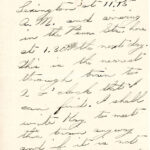 Lexington at 11.15
A.M. and arriving
in the Penn Sta. here
at 1.20 the next day.
This is the nearest
through train to
2 o'clock that I
can find. I shall
write Kay to meet
the train anyway
and if it is not